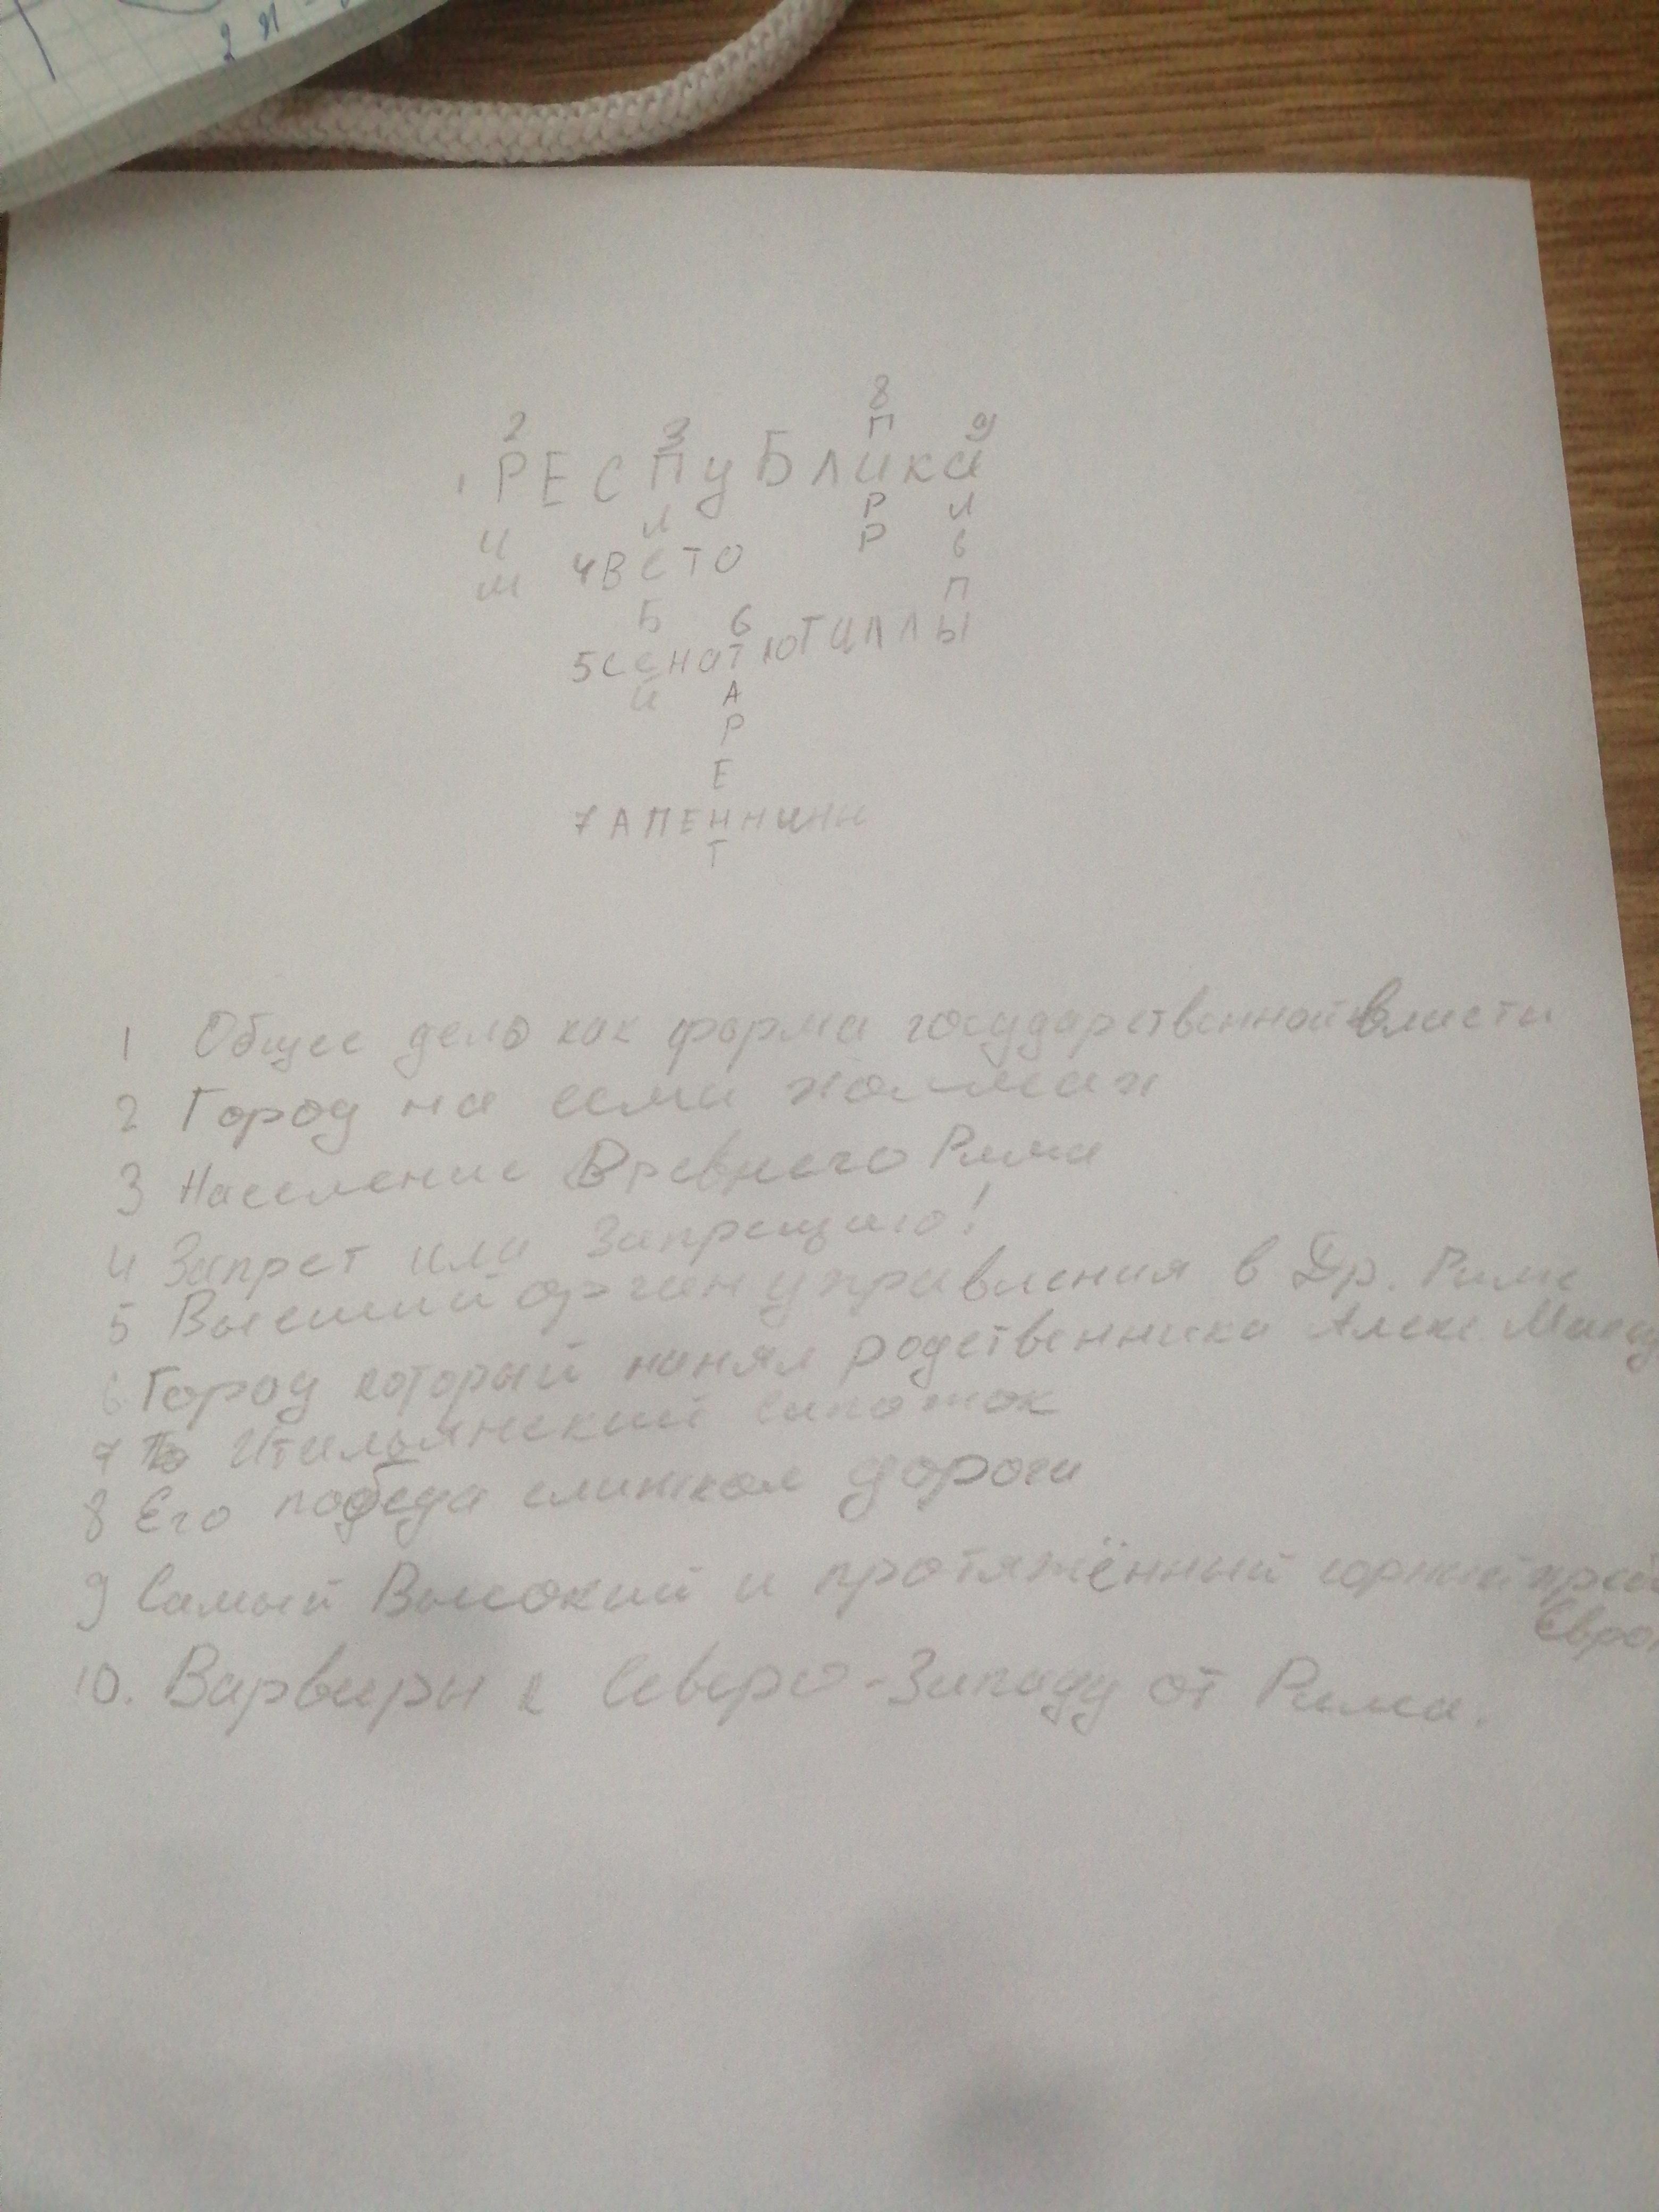 2
8
П
2 3 9
1 РЕСПУБЛИКА
И Л Р Л
М 4 ВЕТО Р Ь
П
Б 6
5 СЕНАТ 10 ГАЛЛЫ
И А
Р
Е
7 АПЕННИНЫ
Т
1 Общее дело как форма государственной власти
2 Город на семи холмах
3 Население Древнего Рима
4 Запрет или Запрещаю!
5 Высший орган управления в Др. Риме
6 Город который нанял родственника Алекс. Макед
7 Итальянский сапожок
8 Его победа слишком дорога
9 Самый Высокий и протяжённый горный
Евро
10. Варвары к Северо-Западу от Рима.